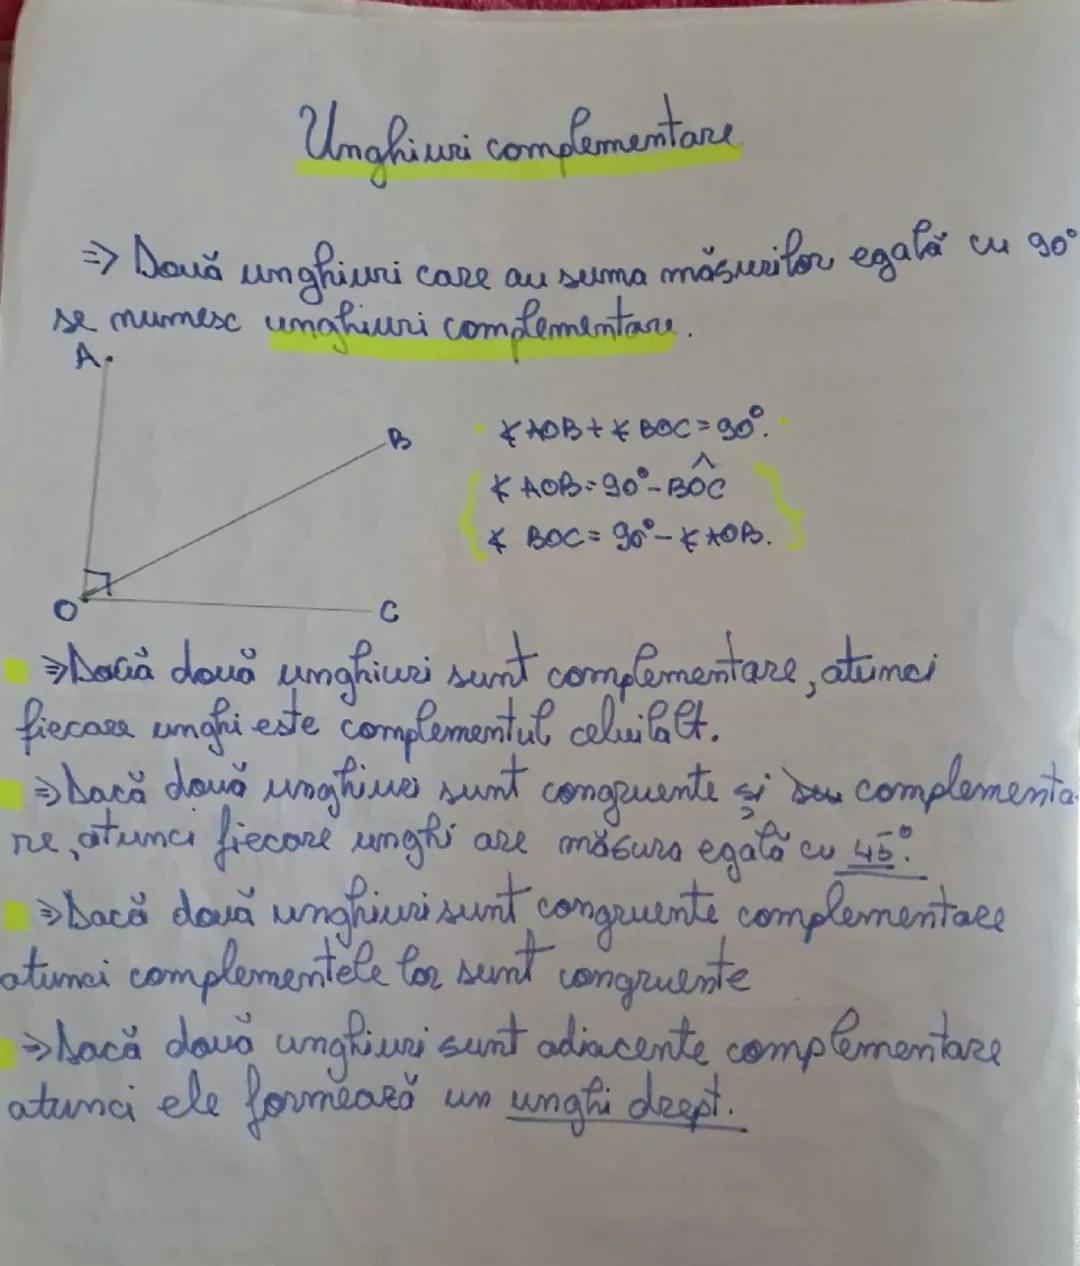 Unghiuri complementare
=> Două unghiuri care au suma măsurilor egală cu 90°
se numesc unghiuri complementare.
A
B
O
C
∢AOB + ∢BOC = 90°.
∢AOB = 90° - BÔC
∢BOC = 90° - ∢AOB.
=> Dacă două unghiuri sunt complementare, atunci
fiecare unghi este complementul celuilalt.
=> Dacă două unghiuri sunt congruente și complementa-
re, atunci fiecare unghi are măsura egală cu 45°.
=> Dacă două unghiuri sunt congruente complementare
atunci complementele lor sunt congruente
=> Dacă două unghiuri sunt adiacente complementare
atunci ele formează un unghi drept.